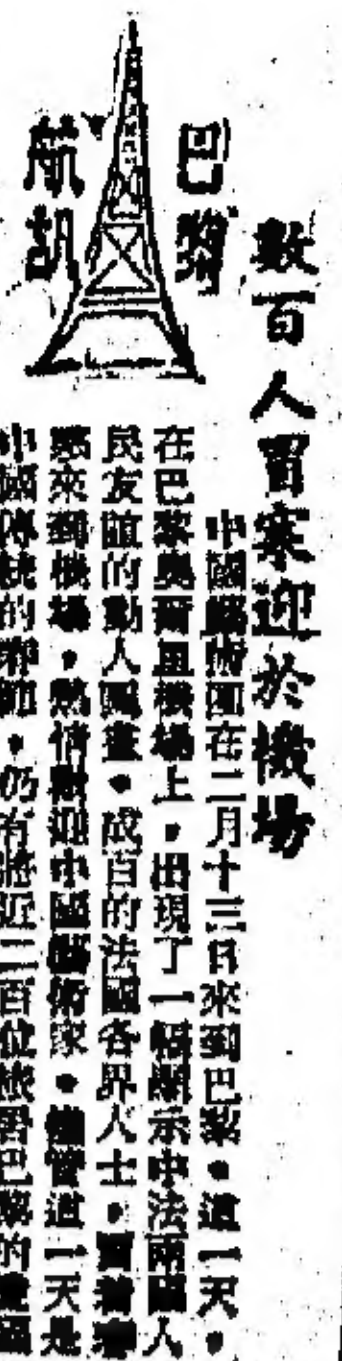 數百人冒寒迎於機場
巴黎
航訊
中國藝術團在二月十三日來到巴黎。這一天，
在巴黎奧爾里機場上，出現了一幅顯示中法兩國人
民友誼的動人圖畫。成百的法國各界人士，冒着寒
來到機場，熱情歡迎中國藝術家。儘管這一天是
中國傳統的春節，仍有將近二百位旅居巴黎的